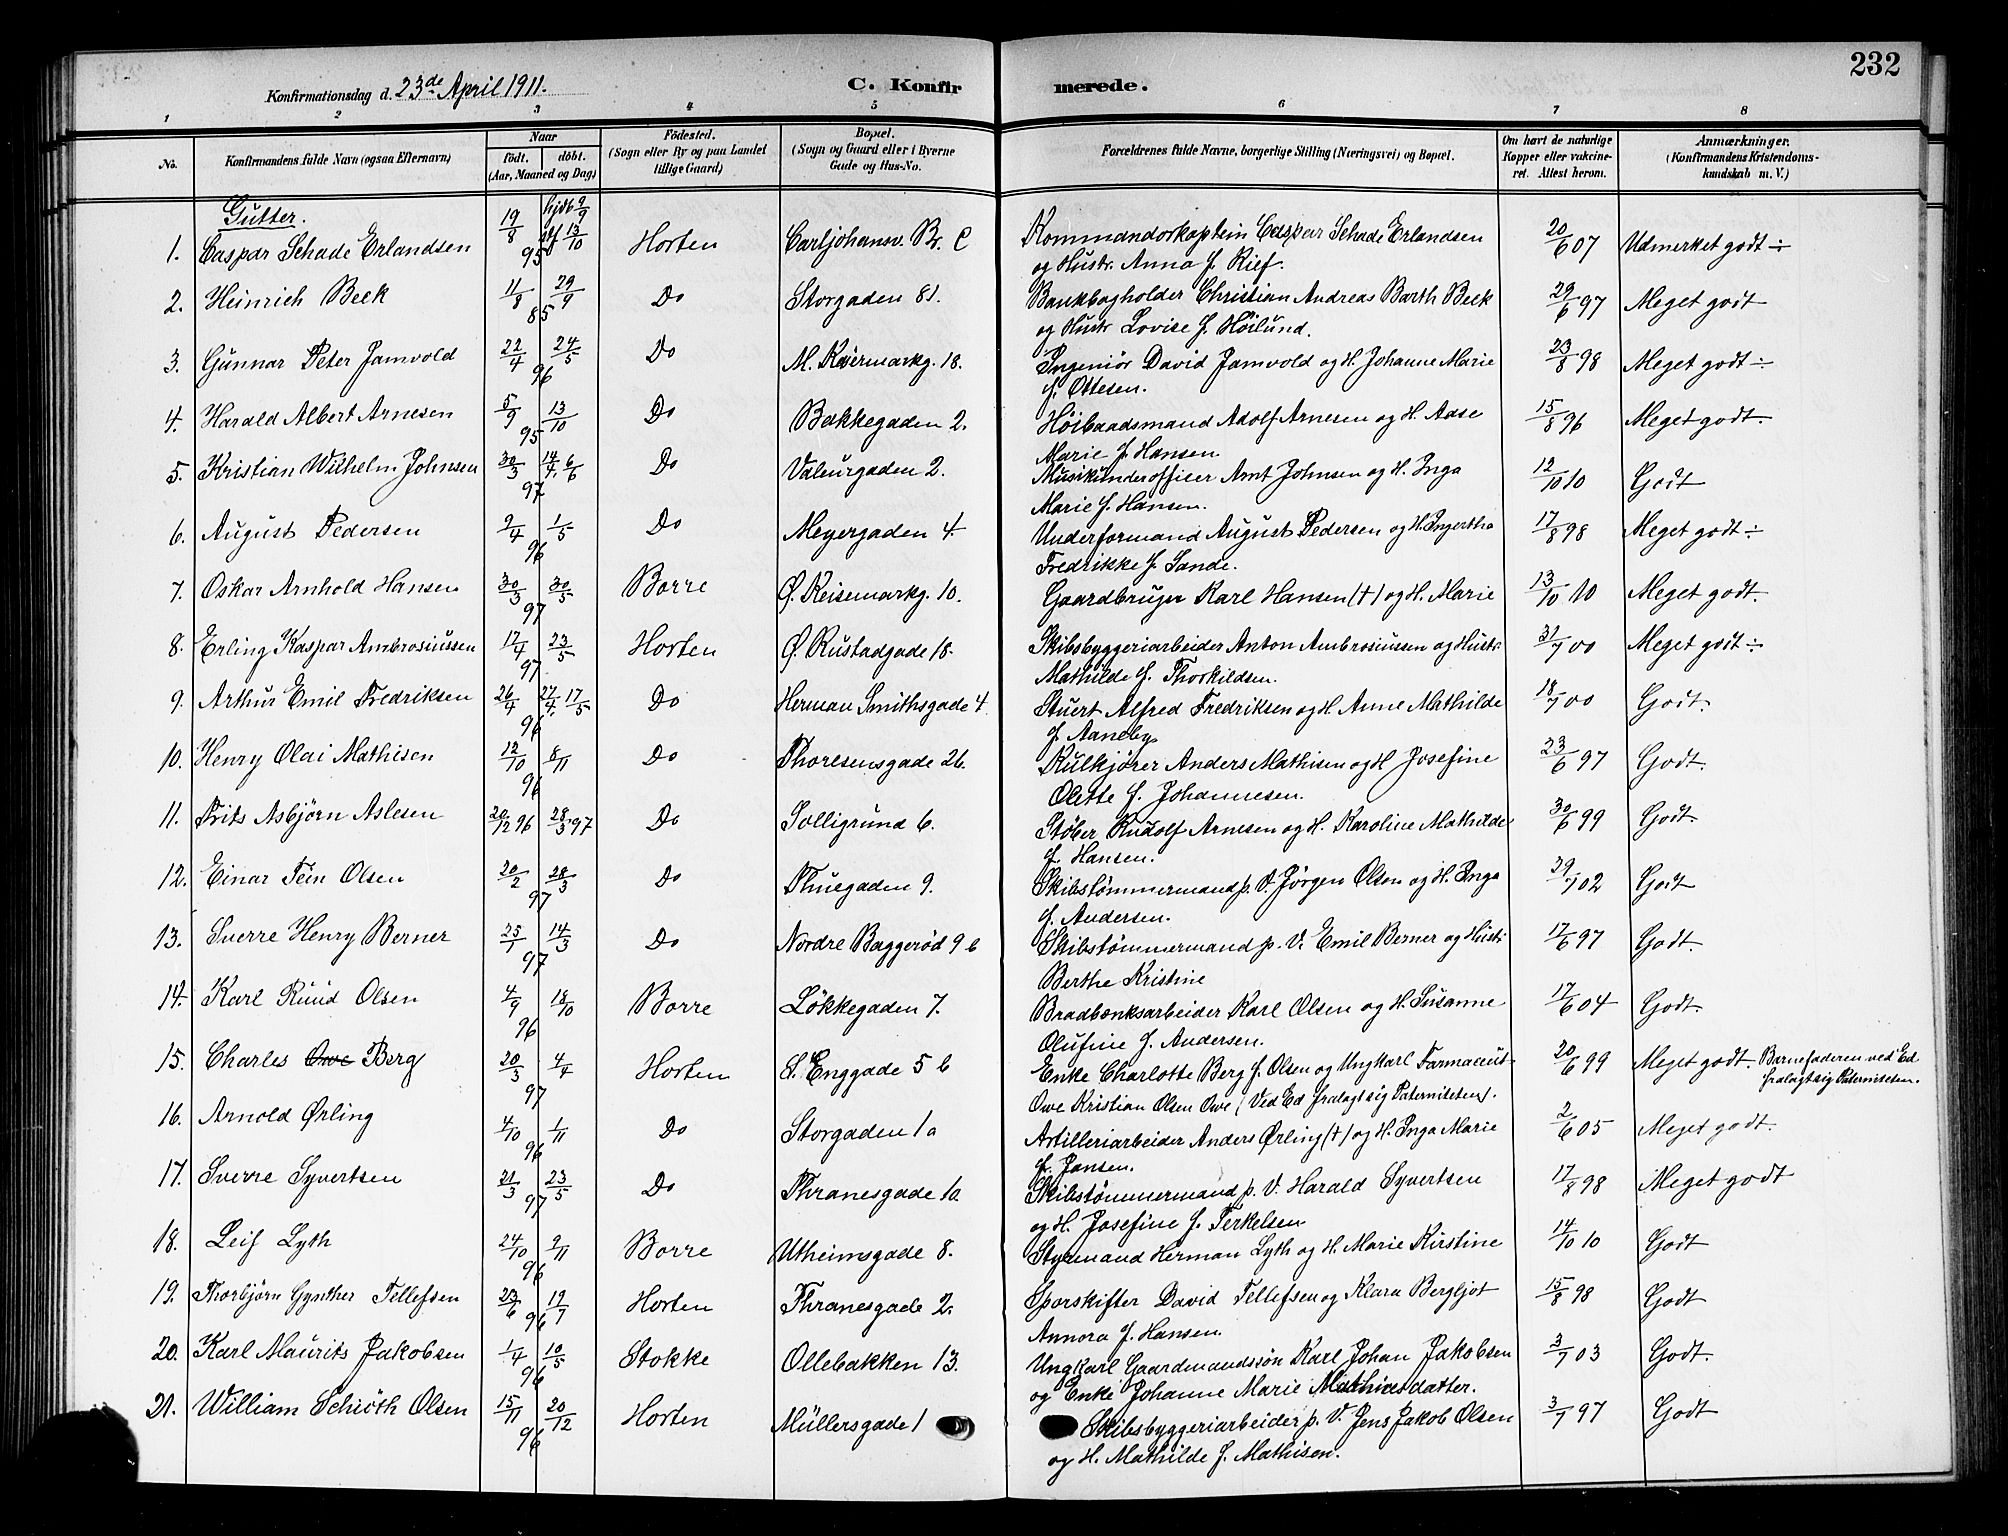 232
Konfirmationsdag d. 23de April 1911.
C. Konfirmerede.
1 2 3 4 5 6 7 8
No. Konfirmandens fulde Navn (ogsaa Efternavn) Naar født. døbt. (Aar, Maaned og Dag) Fødested. (Sogn eller By og paa Landet tillige Gaard) Bopæl. (Sogn og Gaard eller i Byerne Gade og Hus-No. Forældrenes fulde Navne, borgerlige Stilling (Næringsvei) og Bopæl. Om havt de naturlige Kopper eller vakcineret. Attest herom. Anmærkninger. (Konfirmandens Kristendomskundskab m. V.)
Gutter.
1. Caspar Schade Erlandsen 19/8 95 hjdb 9/9 13/10 Horten Carljohansv. Br. C Kommandorkaptein Caspar Schade Erlandsen 20/6 07 Udmerket godt ÷
og Hustr. Anna f. Rief.
2. Heinrich Beck 11/8 85 29/9 Do Storgaden 81. Bankbogholder Christian Andreas Barth Beck 29/6 97 Meget godt
og Hustr Lovise f. Höilund.
3. Gunnar Peter Jamvold 22/4 96 24/5 Do M. Keiermarkg. 18. Ingeniör David Jamvold og H. Johanne Marie 23/8 98 Meget godt ÷
f. Ottesen.
4. Harald Albert Arnesen 5/9 95 13/10 Do Bakkegaden 2. Höibaadsmand Adolf Arnesen og H. Aase 15/8 96 Meget godt.
Marie f. Hansen
5. Kristian Wilhelm Johnsen 30/3 97 14/4. 6/6 Do Valeurgaden 2. Musikunderofficer Arnt Johnsen og H. Inga 12/10 10 Godt
Marie f. Hansen.
6. August Pedersen 9/4 96 1/5 Do Meyergaden 4. Underformand August Pedersen og H. Ingertha 17/8 98 Meget godt ÷
Fredrikke f. Sande.
7. Oskar Arnhold Hansen 30/3 97 30/5 Borre Ø. Keisemarkg. 10. Gaardbruger Karl Hansen (†) og H. Marie 13/10 10 Meget godt.
8. Erling Kaspar Ambrosiussen 17/4 97 23/5 Horten Ø. Rustadgade 18. Skibsbyggeriarbeider Anton Ambrosiussen og Hustr. 31/7 00 Meget godt ÷
Mathilde f. Thorkildsen.
9. Arthur Emil Fredriksen 26/4 96 27/4. 17/5 Do Herman Smithsgade 4 Stuert Alfred Fredriksen og H. Anne Mathilde 18/7 00 Godt.
f. Aaneby
10. Henry Olai Mathisen 12/10 96 8/11 Do Thoresensgade 26. Kulkjörer Anders Mathisen og H Josefine 23/6 97 Godt.
Olette f. Johannesen.
11. Frits Asbjørn Aslesen 20/12 96 28/3 97 Do Solligrund 6. Støber Rudolf Arnesen og H. Karoline Mathilde 30/6 99 Godt.
f. Hansen.
12. Einar Fein Olsen 20/2 97 28/3 Do Thuegaden 9. Skibstømmermand p. V. Jörgen Olsen og H. Inga 29/7 02 Godt
f. Andersen.
13. Sverre Henry Berner 25/1 97 14/3 Do Nordre Baggerød 9 b Skibstömmermand p. V. Emil Berner og Hustr 17/6 97 Godt.
Berthe Kristine
14. Karl Ruud Olsen 4/9 96 18/10 Borre Løkkegaden 7. Bradbænksarbeider Karl Olsen og H. Susanne 17/6 04 Godt.
Olufine f. Andersen.
15. Charles Owe Berg 20/3 97 4/4 Horten S. Enggade 5 b Enke Charlotte Berg f. Olsen og Ungkarl Farmaceut 20/6 99 Meget godt. Barnefaderen ved Ed
Owe Kristian Olsen Owe (Ved Ed fralagt sig Paterniteten). fralagt sig Paterniteten.
16. Arnold Ørling 4/10 96 1/11 Do Storgaden 1a Artilleriarbeider Anders Ørling (†) og H. Inga Marie 2/6 05 Meget godt.
f. Jansen.
17. Sverre Syvertsen 21/3 97 23/5 Do Thranesgade 10. Skibstömmermand p. V. Harald Syvertsen 17/8 98 Meget godt
og H. Josefine f. Terkelsen
18. Leif Lyth 24/10 96 9/11 Borre Utheimsgade 8. Styrmand Herman Lyth og H. Marie Kirstine 14/10 10 Godt
19. Thorbjørn Gynther Tellefsen 23/6 96 19/7 Horten Thranesgade 2. Sporskifter David Tellefsen og Klara Bergljot 15/8 98 Godt
Annora f. Hansen.
20. Karl Maurits Jakobsen 1/4 96 10/5 Stokke Ollebakken 13. Ungkarl Gaardmandssön Karl Johan Jakobsen 3/7 03 Godt.
og Enke Johanne Marie Mathisdatter.
21. William Schiöth Olsen 15/11 96 20/12 Horten Müllersgade 1 Skibsbyggeriarbeider p. V. Jens Jakob Olsen 3/7 97 Godt
og H. Mathilde f. Mathisen.